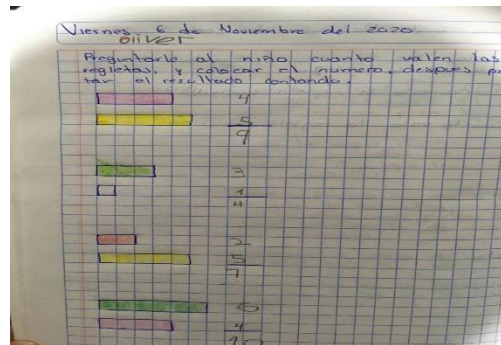 Viernes 6 de Noviembre del 2020
oliver
Preguntarle al niño cuanto valen las
regletas, y colocar el numero, despues
tar el resultado contando.
4
5
9
3
1
4
2
5
7
6
4
10